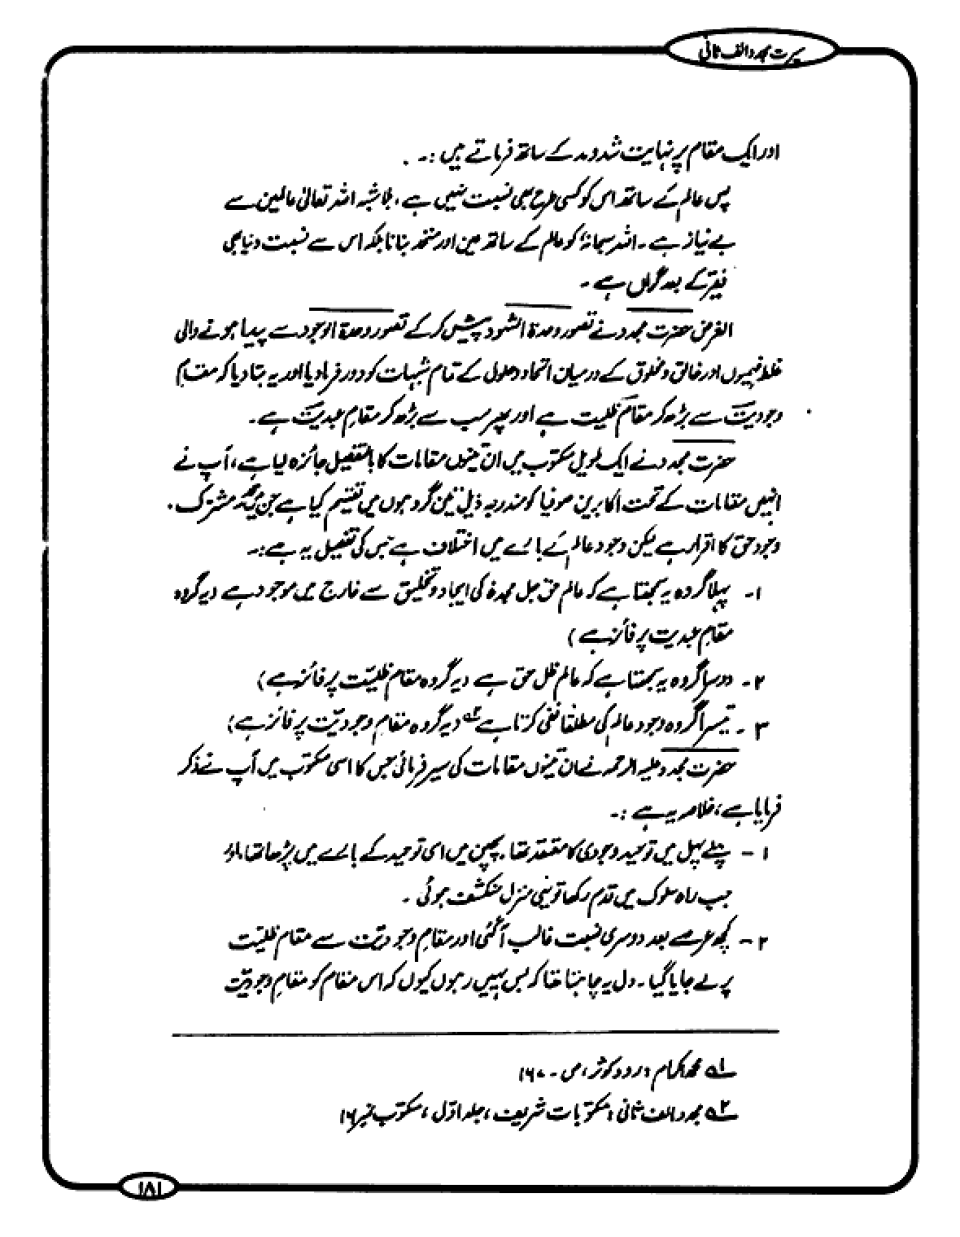 سیرت مجدد الف ثانی
اور ایک مقام پر نہایت شد و مد کے ساتھ فرماتے ہیں :۔
پس عالم کے ساتھ اس کو کسی طرح بھی نسبت نہیں ہے، بلا شبہ اللہ تعالیٰ عالمین سے
بے نیاز ہے ۔ اللہ سبحانہٗ کو عالم کے ساتھ عین اور متحد بنانا بلکہ اس سے نسبت دنیا بھی
فقیر کے بعد گراں ہے ۔
الغرض حضرت مجدد نے تصور وحدۃ الشہود پیش کر کے تصور وحدۃ الوجود سے پیدا ہونے والی
غلط فہمیوں اور خالق و مخلوق کے درمیان اتحاد و حلول کے تمام شبہات کو دور فرما دیا اور یہ بتا دیا کہ مقامِ
وجودیت سے بڑھ کر مقام ظلیت ہے اور پھر سب سے بڑھ کر مقامِ عبدیت ہے ۔
حضرت مجدد نے ایک طویل مکتوب میں ان تینوں مقامات کا بالتفصیل جائزہ لیا ہے ، آپ نے
انہیں مقامات کے تحت اکابرین صوفیا کو مندرجہ ذیل تین گروہوں میں تقسیم کیا ہے جن میں مشترک
وجود حق کا اقرار ہے لیکن وجود عالم کے بارے میں اختلاف ہے جس کی تفصیل یہ ہے :۔
۱۔ پہلا گروہ یہ سمجھتا ہے کہ عالم حق جل مجدہٗ کی ایجاد و تخلیق سے خارج میں موجود ہے (یہ گروہ
مقامِ عبدیت پر فائز ہے )
۲۔ دوسرا گروہ یہ سمجھتا ہے کہ عالم ظلِ حق ہے (یہ گروہ مقام ظلیت پر فائز ہے )
۳۔ تیسرا گروہ وجود عالم کی مطلقاً نفی کرتا ہے ۲؎ (یہ گروہ مقامِ وجودیت پر فائز ہے )
حضرت مجدد علیہ الرحمہ نے ان تینوں مقامات کی سیر فرمائی جس کا اسی مکتوب میں آپ نے ذکر
فرمایا ہے ، خلاصہ یہ ہے :۔
۱ – پہلے پہل میں توحید وجودی کا معتقد تھا۔ بچپن میں اسی توحید کے بارے میں پڑھا تھا، اور
جب راہ سلوک میں قدم رکھا تو یہی منزل منکشف ہوئی ۔
۲ – کچھ عرصے بعد دوسری نسبت غالب آ گئی اور مقام وجودیت سے مقام ظلیت
پر لے جایا گیا ۔ دل یہ چاہتا تھا کہ بس یہیں رہوں کیوں کہ اس مقام کو مقامِ وجودیت
۱؎ محمد اکرام : رود کوثر ، ص - ۱۶۷
۲؎ مجدد الف ثانی : مکتوبات شریف ، جلد اوّل ، مکتوب نمبر ۱۶
۱۸۱